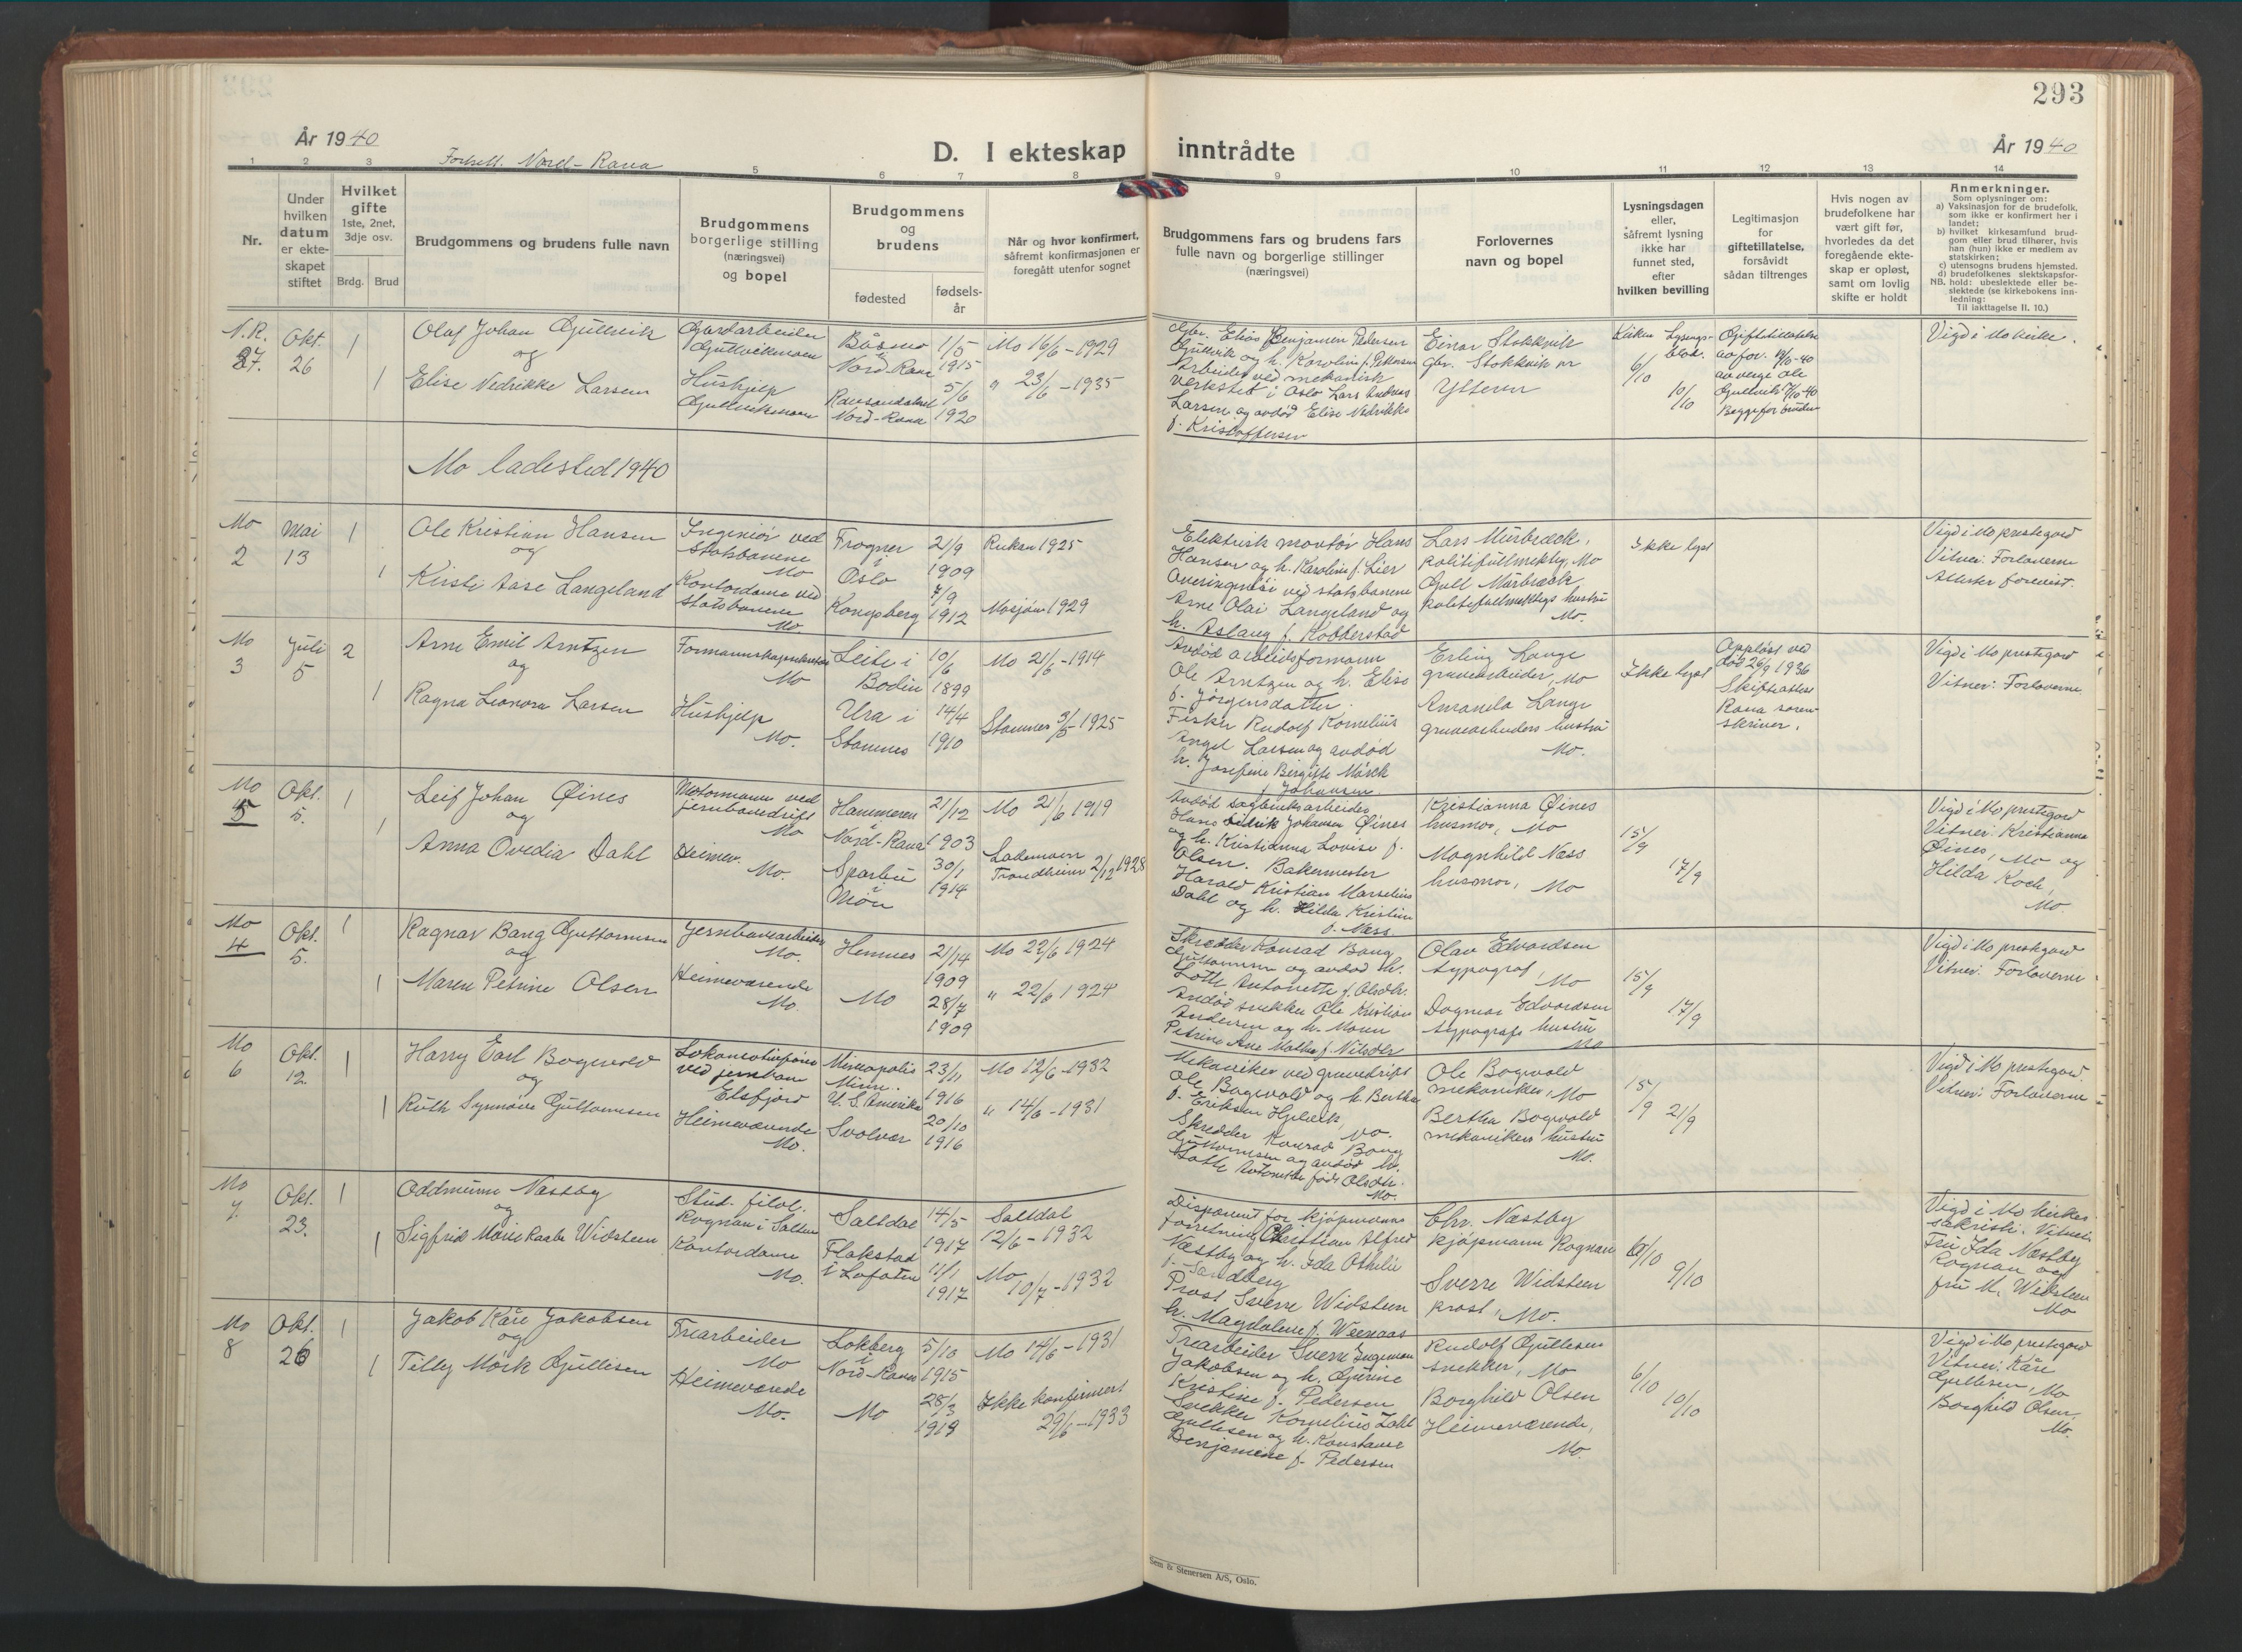 293
År 1940
Fortsett. Nord-Rana
D. I ekteskap inntrådte
År 1940
1 2 3 5 6 7 8 9 10 11 12 13 14
Nr.
Under hvilken datum er ekteskapet stiftet
Hvilket gifte
1ste, 2net, 3dje osv.
Brdg. Brud
Brudgommens og brudens fulle navn
Brudgommens borgerlige stilling (næringsvei) og bopel
Brudgommens og brudens
fødested
fødsels-år
Når og hvor konfirmert, såfremt konfirmasjonen er foregått utenfor sognet
Brudgommens fars og brudens fars fulle navn og borgerlige stillinger (næringsvei)
Forlovernes navn og bopel
Lysningsdagen eller, såfremt lysning ikke har funnet sted, efter hvilken bevilling
Legitimasjon for giftetillatelse, forsåvidt sådan tiltrenges
Hvis nogen av brudefolkene har vært gift før, hvorledes da det foregående ekteskap er opløst, samt om lovlig skifte er holdt
Anmerkninger.
Som oplysninger om:
a) Vaksinasjon for de brudefolk, som ikke er konfirmert her i landet;
b) hvilket kirkesamfund brudgom eller brud tilhører, hvis han (hun) ikke er medlem av statskirken;
c) utensogns brudens hjemsted.
d) brudefolkenes slektskapsforhold: ubeslektede eller beslektede (se kirkebokens innledning:
NB.
Til iakttagelse II. 10.)
N.R. 27.
Okt. 26
1
1
Olaf Johan Gullvik
og
Elise Vedrikke Larsen
Gardarbeider
Gullvikmoen
Hushjelp
Gullvikmoen
Båsmo
i
Nord-Rana
Nord-Rana
1/5
1915
5/6
1920
Mo 16/6-1929
" 23/6-1935
Gbr. Elias Benjamin Pedersen
Gullvik og h. Karolin f. Pettersen
Arbeider ved mekanisk
verksted i Oslo Lars Andreas
Larsen og avdød Elise Vedrikke
f. Kristoffersen
Einar Stokkvik
gbr. Stokkvik pr
Ytteren
6/10
10/10
Giftetillatelse
av verge Ole
Gullvik 7/10-40
Begge for bruden
Vigd i Mo kirke.
Mo ladested 1940
Mo 2
Mai 13
1
1
Ole Kristian Hansen
og
Kirsti Aase Langeland
Ingeniør ved
Statsbanene
Mo
Kontordame ved
Statsbanene
Mo.
Frogner
i
Oslo
Kongsberg
21/9
1909
7/9
1912
Rjukan 1925
Mosjøen 1929
Elektrisk montør Hans
Hansen og h. Karoline f. Lier
Overingeniør ved statsbanene
Arne Olai Langeland og
h. Aslaug f. Kobberstad
Lars Murbræck,
politifullmektig, Mo
Gull Murbræck
politifullmektigs hustru
Mo.
Ikke lyst
Vigd i Mo prestegård
Vitner: Forloverne
Attester forevist.
Mo 3
Juli 5
2
1
Arne Emil Arntzen
og
Ragna Leonora Larsen
Mo
Hushjelp
Mo.
Leite i
Bodin
Ura i
Stamnes
10/6
1899
14/4
1910
Mo 21/6-1914
Stamnes 3/5-1925
Avdød arbeidsformann
Ole Arntzen og h. Elise
f. Jørgensdatter.
Fisker Rudolf Kornelius
Angel Larsen og avdød
h. Josefine Birgitte Mørck
f. Johansen.
Erling Lange
gruvearbeider, Mo
Amanda Lange
gruvearbeiders hustru
Mo.
Ikke lyst
Oppløst ved
død 26/9 1936
Skifteattest
Rana soren-
skriver.
Vigd i Mo prestegård
Vitner: Forloverne
Mo 5
Okt. 5.
1
1
Leif Johan Øines
og
Anna Ovedia Dahl
Motormann ved
jernbanedrift
Mo
Heimev.
Mo.
Hammeren
i
Nord-Rana
Sparbu
Møre
21/12
1903
30/1
1914
Mo 21/6 1919
Lademoen
Trondheim 2/12 1928
Avdød sagbruksarbeider
Hans Johansen Øines
og h. Kristianna Lovise f.
Olsen. Bakermester
Harald Kristian Marselius
Dahl og h. Hilda Kristine
f. Næss
Kristianna Øines
husmor, Mo
Magnhild Næss
husmor, Mo
15/9
17/9
Vigd i Mo prestegård
Vitner: Kristianna
Øines, Mo og
Hilda Koch,
Mo.
Mo 4
Okt. 5.
1
1
Ragnar Bang Guttormsen
og
Maren Petrine Olsen
Jernbanearbeider
Mo.
Heimeværende
Mo.
Hemnes
Mo
1909
28/7
1909
Mo 22/6 1924
" 22/6 1924
Skredder Konrad Bang
Guttormsen og avdød h.
Lotte Antonette f. Olsdtr.
Avdød snekker Ole Kristian
Andersen og h. Maren
Petrine Ane Malka f. Nilsdtr
Olav Edvardsen
typograf, Mo
Dagmar Edvardsen
typografs hustru
Mo
15/9
17/9
Vigd i Mo prestegård
Vitner: Forloverne
Mo 6
Okt. 12.
1
1
Harry Earl Bogvold
og
Ruth Synnøve Guttormsen
ved jernban
Elsfjord
Heimeværende
Mo.
Mineapolis
Minn.
U.S. Amerika
Svolvær
23/11
1916
20/10
1916
Mo 12/6-1932
" 14/6-1931
Mekaniker ved gruvedrift
Ole Bogvold og h. Bertha
f. Eriksen
Skredder Konrad Bang
Guttormsen og avdød h.
Lotte Antonette født Olsdtr.
Mo.
Ole Bogvold
mekaniker, Mo
Bertha Bogvold
mekanikers hustru
Mo.
15/9
21/9
Vigd i Mo prestegård.
Vitner: Forloverne
Mo 7
Okt. 23.
1
1
Oddmunn Næstby
og
Sigfrid Marie Widsteen
Stud. filol.
Rognan i Salten
Kontordame
Mo.
Saltdal
Flakstad
i Lofoten
14/5
1917
11/1
1917
Saltdal
12/6-1932
Mo
10/7-1932
Disponent for kjøpmanns
forretning Christian Alfred
Næstby og h. Ida Othelie
f. Sandberg
Prost Sverre Widsteen
h. Magdalene f. Weenaas
Chr. Næstby
kjøpmann Rognan
Sverre Widsteen
prost, Mo.
9/10
Vigd i Mo kirkes
sakristi. Vitner:
Fru Ida Næstby
Rognan og
fru M. Widsteen
Mo
Mo 8
Okt. 26
1
1
Jakob Kåre Jakobsen
og
Tilly Mørk Gullesen
Trearbeider
Mo
Heimeværende
Mo.
Lokberg
i
Nord-Rana
Mo
5/10
1915
28/3
1918
Mo 14/6-1931
Ikke konfirmert
29/6-1933
Trearbeider Sverre Ingeman
Jakobsen og h. Gurine
Kristine f. Pedersen
Snekker Kornelius Zahl
Gullesen og h. Konstanse
Benjamine f. Pedersen
Rudolf Gullesen
snekker, Mo
Borghild Olsen
Heimeværende,
Mo.
6/10
10/10
Vigd i Mo prestegård
Vitner: Kåre
Gullesen, Mo
Borghild Olsen,
Mo.
Sem & Stenersen A/S, Oslo.